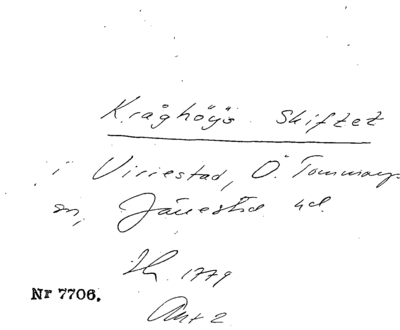 Kråghöys Skiftet
i Viriestad, Ö. Tommarps
sn, Järrestad hd.
1779
Nr 7706.
Akt 2